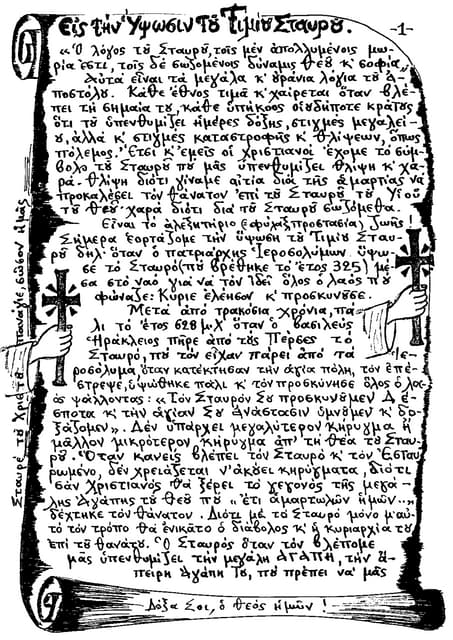 Εἰς τὴν Ὕψωσιν Τοῦ Τιμίου Σταυροῦ. -1-
«Ὁ λόγος τοῦ Σταυροῦ, τοῖς μὲν ἀπολλυμένοις μω-
ρία ἐστί, τοῖς δὲ σωζομένοις δύναμις Θεοῦ κ' σοφία»
Αὐτὰ εἶναι τὰ μεγάλα κ' οὐράνια λόγια τοῦ Ἀ-
ποστόλου. Κάθε ἔθνος τιμᾶ κ' χαίρεται ὅταν βλέ-
πει τὴ σημαία του, κάθε ὑπήκοος οἱουδήποτε κράτους
ὅτι τοῦ ὑπενθυμίζει ἡμέρες δόξης, στιγμὲς μεγαλεί-
ου, ἀλλὰ κ' στιγμὲς καταστροφῆς κ' θλίψεων, ὅπως
πόλεμος. Ἔτσι κ' ἐμεῖς οἱ χριστιανοὶ ἔχομε τὸ σύμ-
βολο τοῦ Σταυροῦ ποὺ μᾶς ὑπενθυμίζει θλίψη κ' χα-
ρά. Θλίψη διότι γίναμε αἰτία διὰ τῆς ἁμαρτίας νὰ
προκαλέσει τὸν θάνατον ἐπὶ τοῦ Σταυροῦ τοῦ Υἱοῦ
τοῦ Θεοῦ· χαρὰ διότι διὰ τοῦ Σταυροῦ σωζόμεθα.
Εἶναι τὸ ἀλεξητήριο (=φύλαξ, προστασία) ζωῆς!
Σήμερα ἑορτάζομε τὴν ὕψωση τοῦ Τιμίου Σταυ-
ροῦ δηλ. ὅταν ὁ πατριάρχης Ἱεροσολύμων ὕψω-
σε τὸ Σταυρὸ (ποὺ βρέθηκε τὸ ἔτος 325) μέ-
σα στὸ ναὸ γιὰ νὰ τὸν ἰδεῖ ὅλος ὁ λαὸς ποὺ
φώναζε: Κύριε ἐλέησον κ' προσκυνοῦσε.
Μετὰ ἀπὸ τρακόσια χρόνια, πά-
λι τὸ ἔτος 628 μ.Χ. ὅταν ὁ βασιλεὺς
Ἡράκλειος πῆρε ἀπὸ τοὺς Πέρσες τὸ
Σταυρό, ποὺ τὸν εἶχαν πάρει ἀπὸ τὰ Ἱε-
ροσόλυμα, ὅταν κατέκτησαν τὴν ἁγία πόλη, τὸν ἐπέ-
στρεψε, ὑψώθηκε πάλι κ' τὸν προσκύνησε ὅλος ὁ λα-
ὸς ψάλλοντας: «Τὸν Σταυρὸν Σου προσκυνοῦμεν Δέ-
σποτα κ' τὴν ἁγίαν Σου Ἀνάστασιν ὑμνοῦμεν κ' δο-
ξάζομεν». Δὲν ὑπάρχει μεγαλύτερον κήρυγμα ἢ
μᾶλλον μικρότερον, κήρυγμα ἀπ' τὴ θέα τοῦ Σταυ-
ροῦ. Ὅταν κανεὶς βλέπει τὸν Σταυρὸ κ' τὸν Ἐσταυ-
ρωμένο, δὲν χρειάζεται ν' ἀκούει κηρύγματα, διότι
σὰν Χριστιανὸς θὰ ξέρει τὸ γεγονὸς τῆς μεγά-
λης Ἀγάπης τοῦ Θεοῦ ποὺ "ἔτι ἁμαρτωλῶν ἡμῶν.."
δέχτηκε τὸν θάνατον. Διότι μὲ τὸ Σταυρὸ μόνο μ' αὐ-
τὸ τὸν τρόπο θὰ ἐνικᾶτο ὁ διάβολος κ' ἡ κυριαρχία του
ἐπὶ τοῦ θανάτου. Ὁ Σταυρὸς ὅταν τὸν βλέπομε
μᾶς ὑπενθυμίζει τὴν μεγάλη ΑΓΑΠΗ, τὴν ἄ-
πειρη Ἀγάπη Του, ποὺ πρέπει νὰ μᾶς
Σταυρὲ τοῦ Χριστοῦ παναγιε, σῶσον ἡμᾶς
Δόξα Σοι, ὁ Θεὸς ἡμῶν!